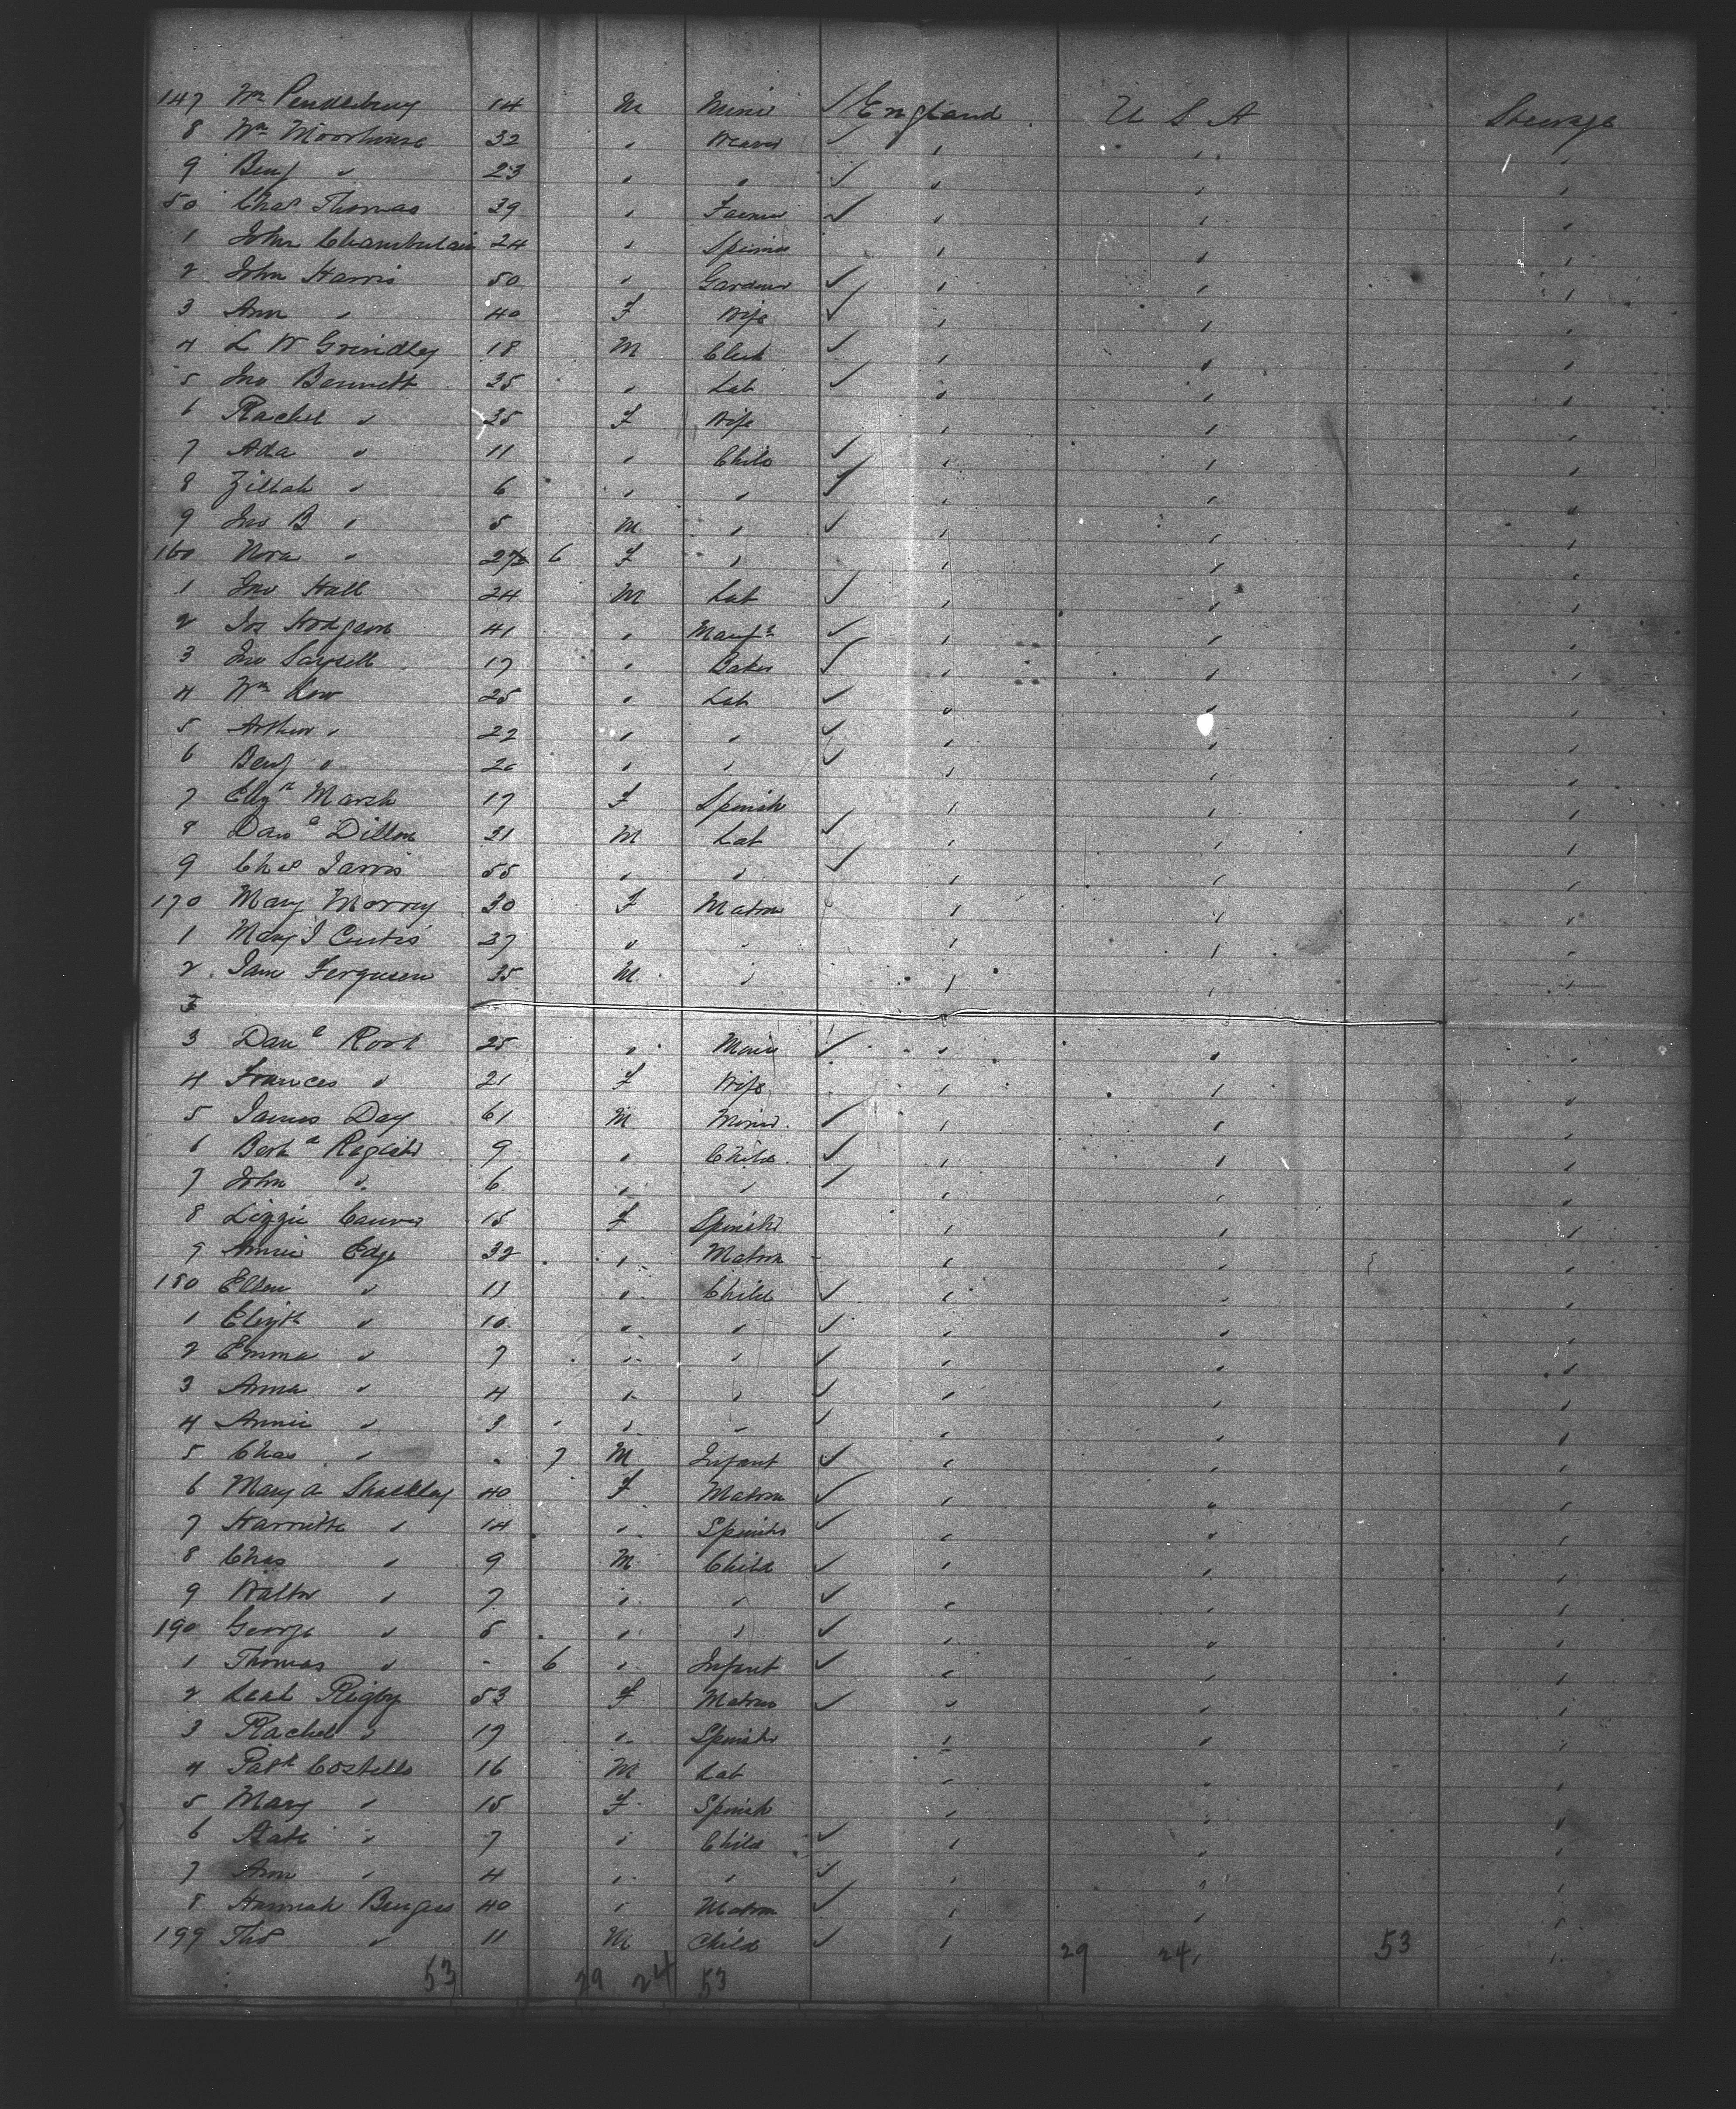 147 Wm Pendlebury 14 M Miner ✓ England U S A Steerage
8 Wm Moorhouse 32 " Weaver ✓ " " "
9 Benj " 23 " " ✓ " " "
50 Chas Thomas 39 " Farmer ✓ " " "
1 John Chamberlain 24 " " " "
2 John Harris 50 " Gardner ✓ " " "
3 Ann " 40 F Wife ✓ " " "
4 L W Grindley 18 M Clerk ✓ " " "
5 Jno Bennett 35 " Lab ✓ " " "
6 Rachel " 35 F Wife " " "
7 Ada " 11 " Child ✓ " " "
8 Zillah " 6 " " ✓ " " "
9 Jno B " 5 M " ✓ " " "
160 Nora " 6 F " " " "
1 Jno Hall 24 M Lab ✓ " " "
2 Jos Hodgson 41 " Manfr ✓ " " "
3 Jno 17 " Baker ✓ " " "
4 Wm Low 25 " Lab ✓ " " "
5 Arthur " 22 " " ✓ " " "
6 Benj " 20 " " ✓ " " "
7 Elizh Marsh 17 F Spinstr " " "
8 Danl Dillon 31 M Lab ✓ " " "
9 Chas Jarvis 55 " " ✓ " " "
170 Mary Morrey 30 F Matron " " "
1 Mary J Curtis 37 " " " " "
2 Jam Ferguson 35 M " " " "
3
3 Danl Root 25 " ✓ " " "
4 Frances " 21 F Wife " " "
5 James Day 61 M Miner ✓ " " "
6 Child ✓ 9 " " " "
7 John " 6 " " ✓ " " "
8 Lizzie 15 F Spinstr " " "
9 Annie Edge 32 " Matron " " "
180 Ellen " 11 " Child ✓ " " "
1 Elizth " 10 " " ✓ " " "
2 Emma " 7 " " ✓ " " "
3 Anna " 4 " " ✓ " " "
4 Annie " 3 " " ✓ " " "
5 Chas " - 7 M Infant ✓ " " "
6 Mary A Shackley 40 F Matron ✓ " " "
7 Harriette " 14 " Spinstr ✓ " " "
8 Chas " 9 M Child ✓ " " "
9 Walter " 7 " " ✓ " " "
190 George " 5 " " ✓ " " "
1 Thomas " - 6 " Infant ✓ " " "
2 Leah Rigby 53 F Matron ✓ " " "
3 Rachel " 17 " Spinstr " " "
4 Patk Costello 16 M Lab " " "
5 Mary " 15 F Spinstr " " "
6 Kate " 7 " Child ✓ " " "
7 Ann " 4 " " ✓ " " "
8 Hannah 40 " Matron ✓ " " "
199 Thos " 11 M Child ✓ " 29 24 53 "
53 29 24 53